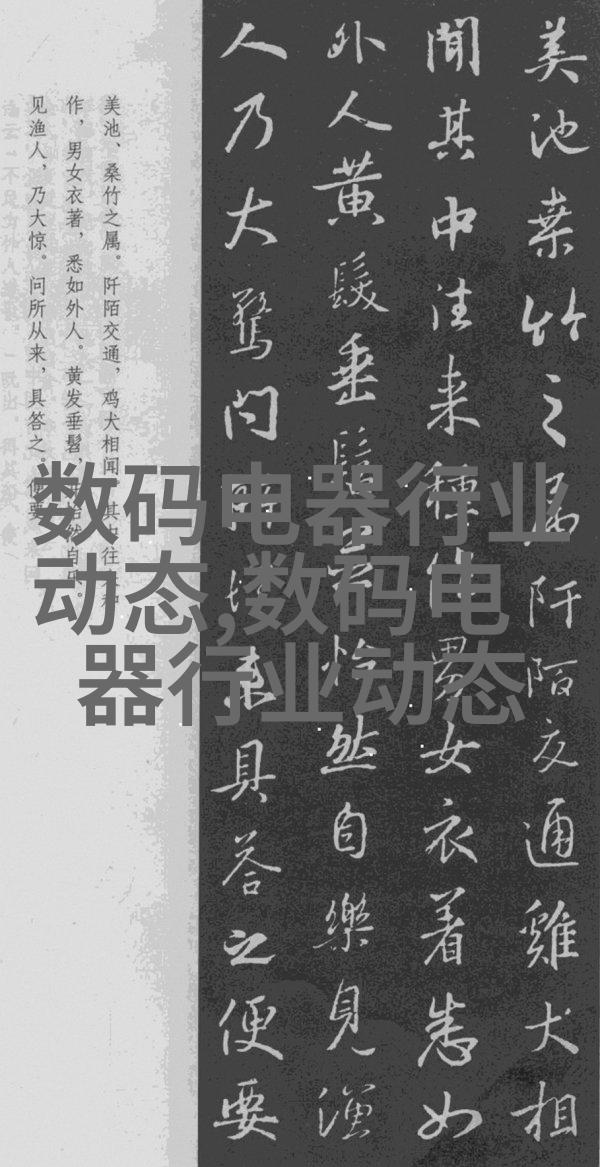 美池桒竹之属阡陌交通雞犬相
聞其中往来種作男女衣着悉如
外人黄髮垂髫並怡然自樂見漁
人乃大驚問所從来具答之便要
美池、桑竹之属。阡陌交通，鸡犬相闻。其中往来种
作，男女衣著，悉如外人。黄发垂髫，并怡然自乐。
见渔人，乃大惊。问所从来，具答之。便要
数码电器行业
动态,数码电
器行业动态